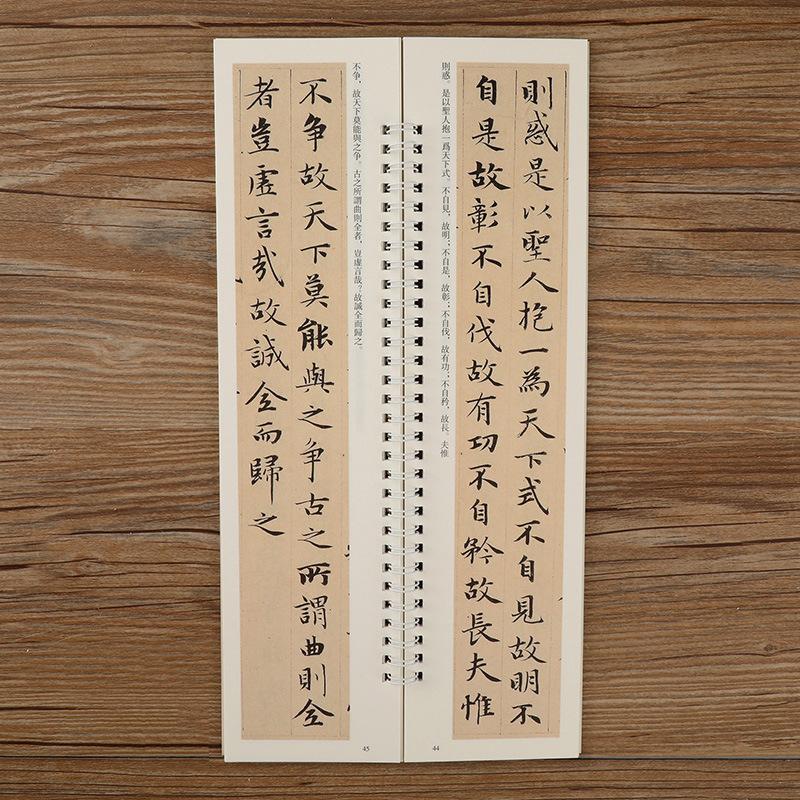 則惑是以聖人抱一為天下式不自見故明不
自是故彰不自伐故有功不自矜故長夫惟
則惑。是以聖人抱一爲天下式。不自見，故明；不自是，故彰；不自伐，故有功；不自矜，故長。夫惟
44
不争故天下莫能與之争古之所謂曲則全
者豈虛言哉故誠全而歸之
不争，故天下莫能與之争。古之所謂曲則全者，豈虛言哉？故誠全而歸之。
45